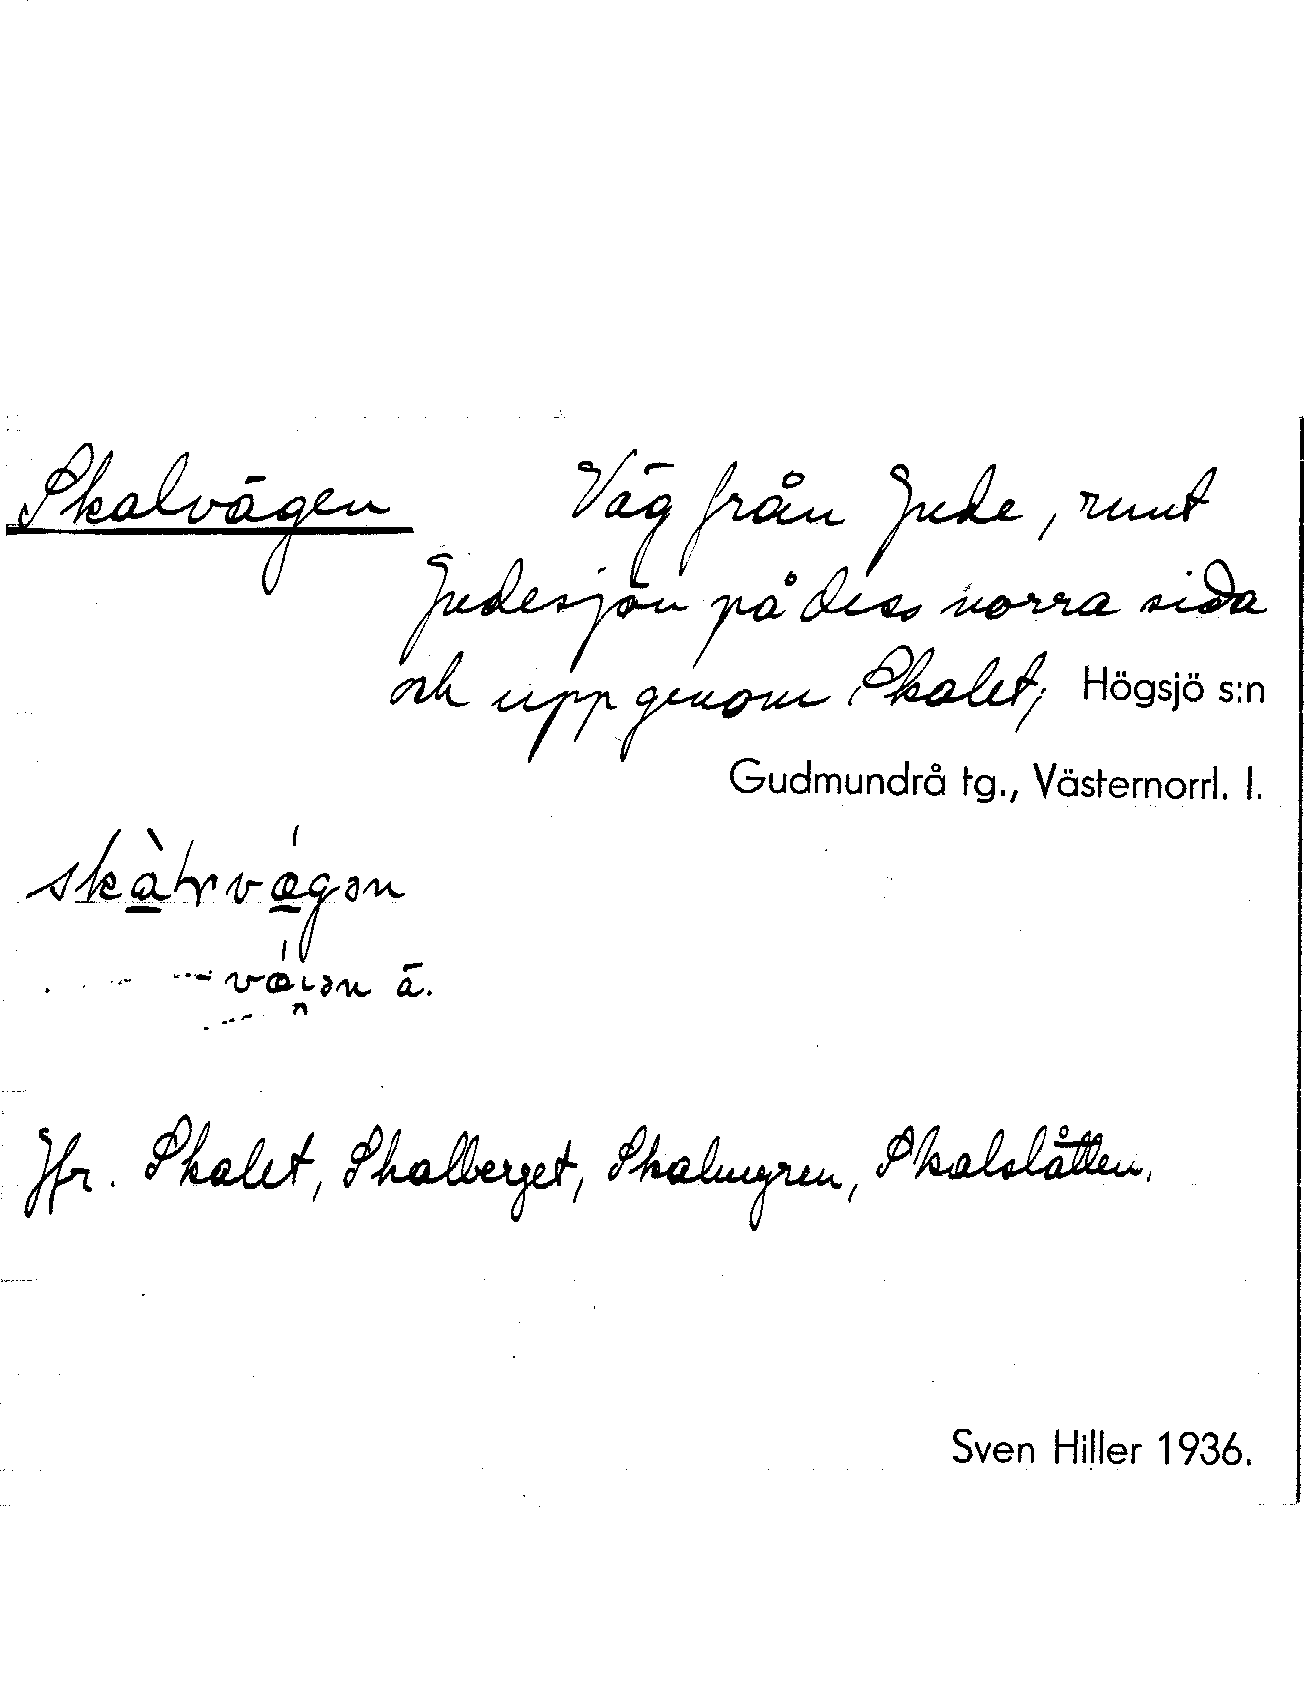 Skalvägen Väg från Jude, runt
Judesjön på dess norra sida
och upp genom Skalet, Högsjö s:n
Gudmundrå tg., Västernorrl. l.
ä.
Jfr. Skalet, Skalberget, Skalmyren, Skalslåtten.
Sven Hiller 1936.